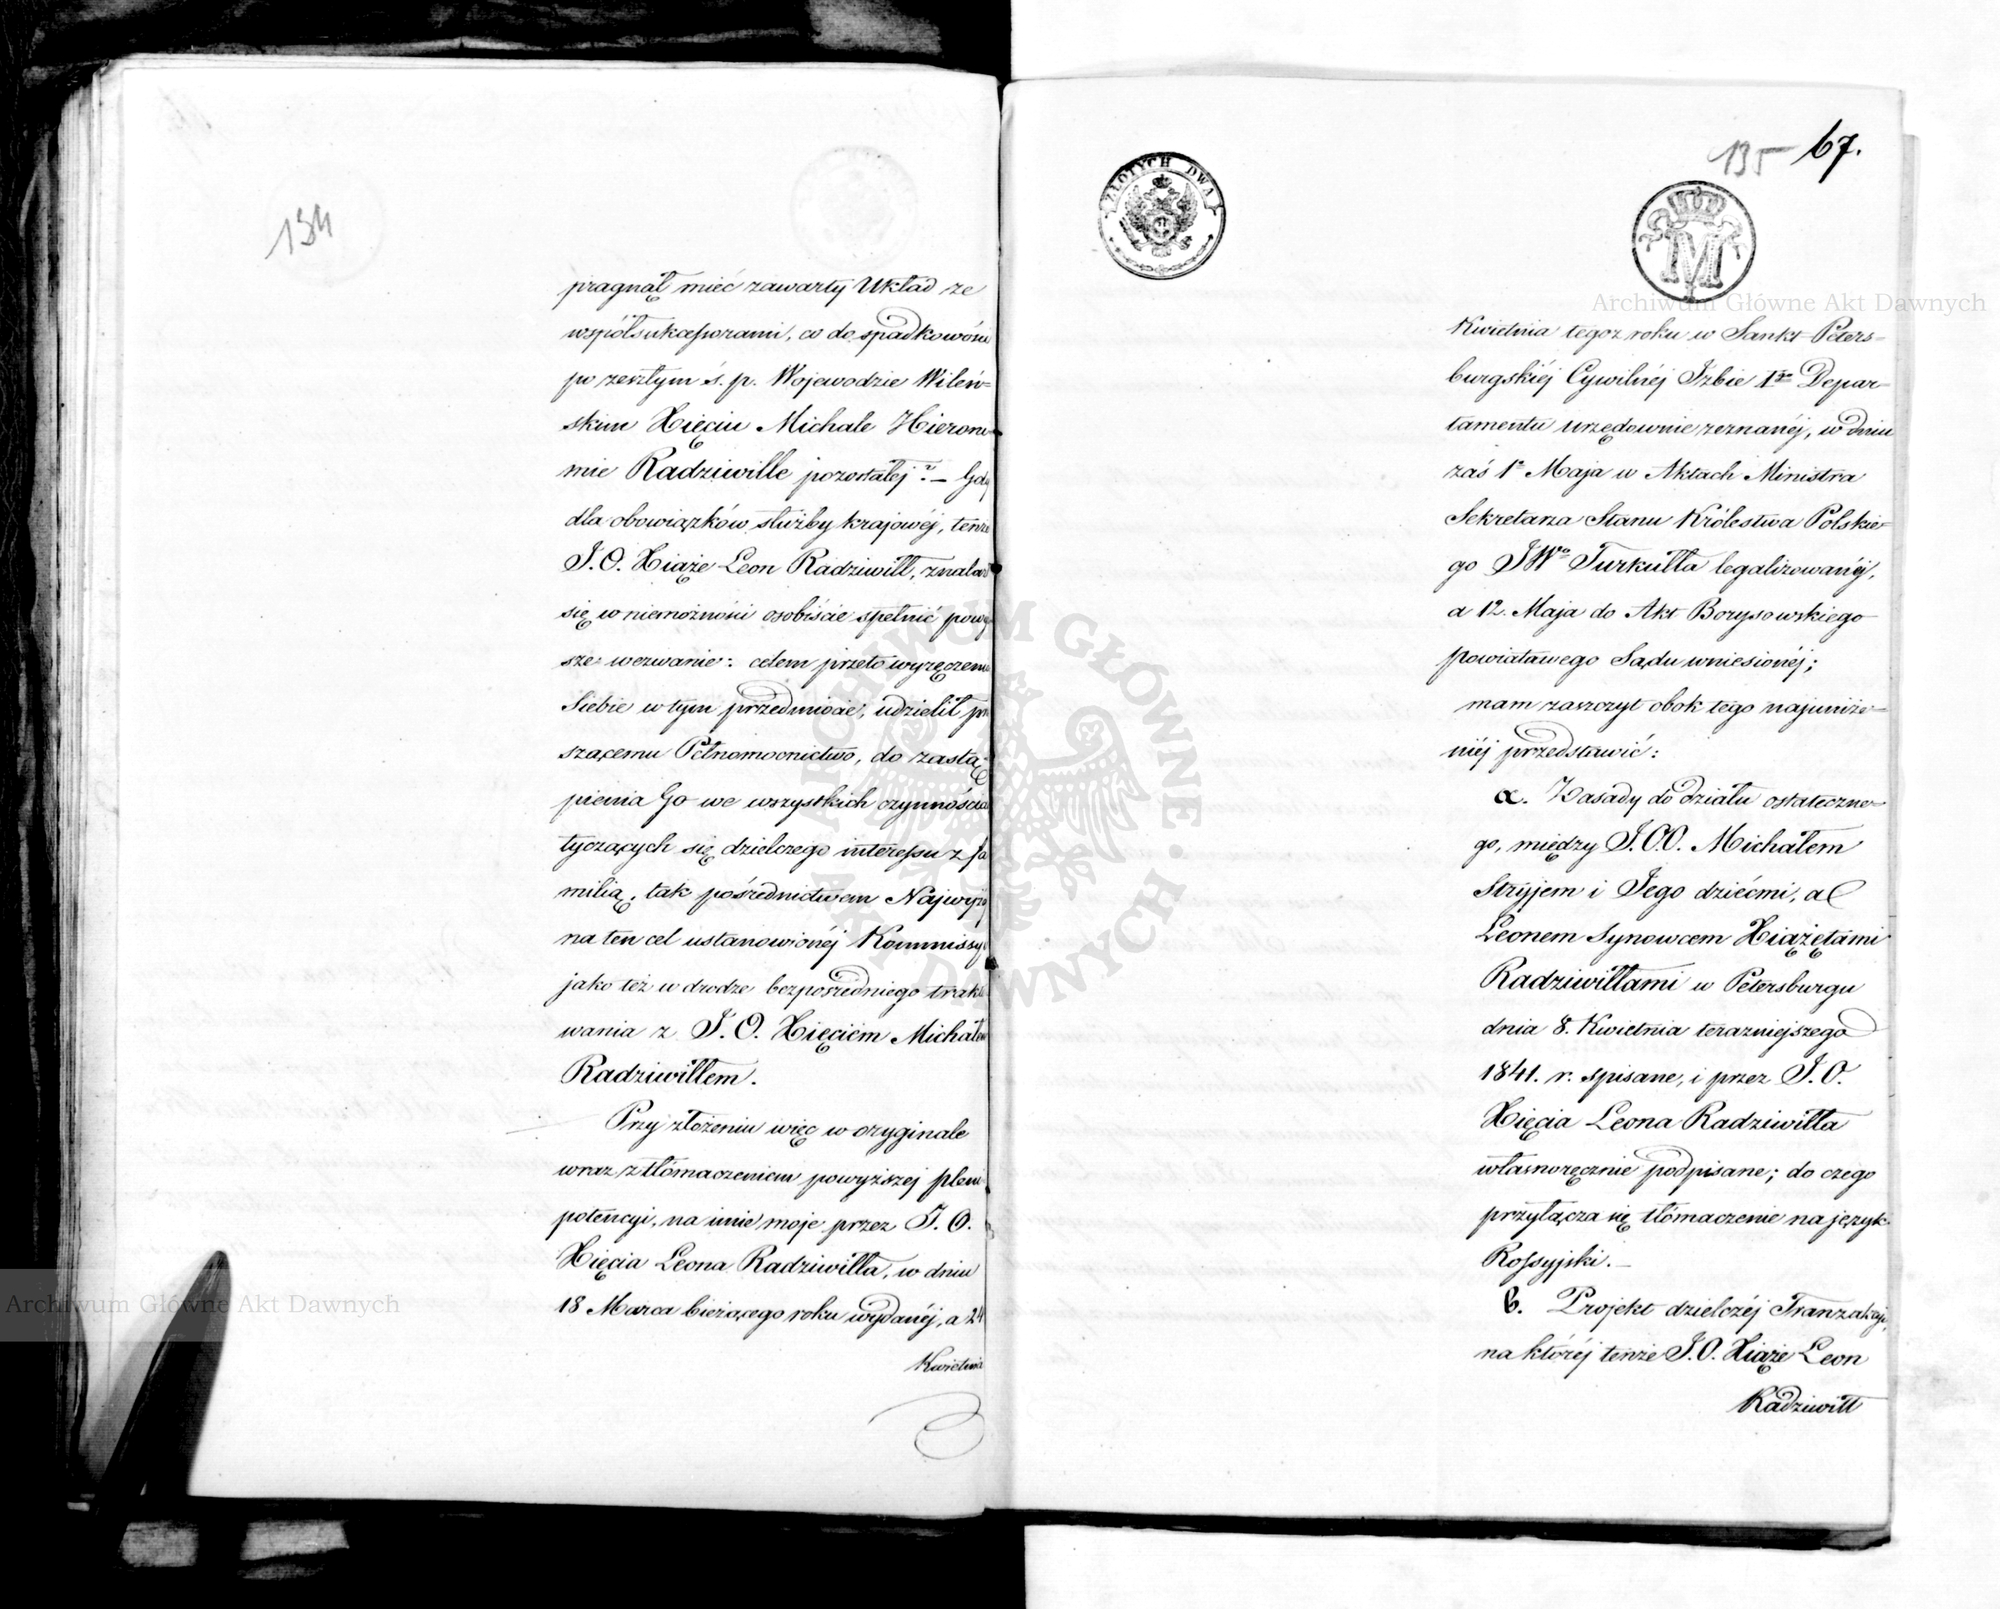 134
pragnął mieć zawarty Układ ze
współsukcessorami, co do spadkowości
po zeszłym ś. p. Wojewodzie Wileń-
skim Xięciu Michale Hieroni-
mie Radziwille pozostałej. – Gdy
dla obowiązków służby krajowéj, tenże
J. O. Xiąże Leon Radziwiłł, znalazł
się w niemożności osobiście spełnić powy-
sze wezwanie: celem przeto wyręczenia
Siebie w tym przedmiocie, udzielił pi-
szącemu Pełnomocnictwo, do zastą-
pienia Go we wszystkich czynnościach
tyczących się dzielczego interessu z fa-
milią, tak pośrednictwem Najwyżej
na ten cel ustanowionéj Kommissyi
jako też w drodze bezpośredniego trakto-
wania z J. O. Xięciem Michałem
Radziwiłłem.
Przy złożeniu więc w oryginale
wraz z tłómaczeniem powyższej pleni-
potencyi, na imie moje przez J. O.
Xięcia Leona Radziwiłła, w dniu
18 Marca bieżącego roku wydanéj, a 24
Kwietnia
135 67.
ZŁOTYCH DWA
M
Kwietnia tegoż roku w Sankt-Peters-
burgskiéj Cywilnéj Izbie 1go Depar-
tamentu urzędownie zeznanéj, w dniu
zaś 1o Maja w Aktach Ministra
Sekretarza Stanu Królestwa Polskie-
go JWo Turkułła legalizowanéj,
a 12. Maja do Akt Borysowskiego
powiatowego Sądu wniesionéj;
mam zaszczyt obok tego najuniże-
niéj przedstawić:
a. Zasady do działu ostateczne-
go, między J. O. O. Michałem
Stryjem i Jego dziećmi, a
Leonem Synowcem Xiążętami
Radziwiłłami w Petersburgu
dnia 8. Kwietnia teraźniejszego
1841. r. spisane, i przez J. O.
Xięcia Leona Radziwiłła
własnoręcznie podpisane; do czego
przyłącza się tłómaczenie na język
Rossyjski. –
b. Projekt dzielczéj Tranzakcyi,
na któréj tenże J. O. Xiąże Leon
Radziwiłł
Archiwum Główne Akt Dawnych
Archiwum Główne Akt Dawnych
ARCHIWUM GŁÓWNE AKT DAWNYCH